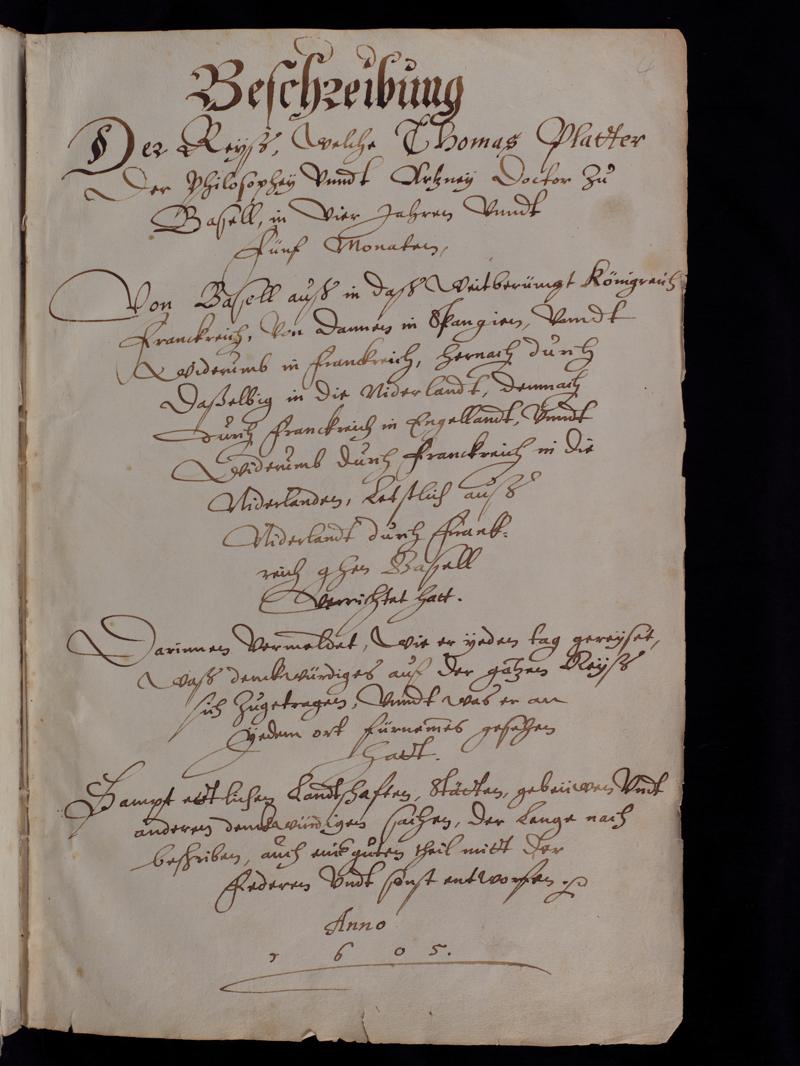 4
Beschreibung
Der Reyss, welche Thomas Platter
Der Philosophey vnndt Artzney Doctor zu
Basell, in vier Jahren vnndt
Fünf Monaten,
Von Basell auß in daß weitberümpt Königreich
Franckreich, von dannen in Spangien, vnndt
widerumb in Franckreich, hernach durch
Daßelbig in die Niderlandt, demnach
durch Franckreich in Engellandt, vnndt
widerumb durch Franckreich in die
Niderlanden, letstlich auß
Niderlandt durch Franck-
reich ghen Basell
verrichtet hatt.
Darinnen vermeldet, wie er yeden tag gereyset,
waß denckwürdiges auf der gantzen Reyß
sich zugetragen, vnndt was er an
yedem ort fürnemes gesehen
hatt.
Sampt ettlichen Landtschaften, Stätten, gebeüwen vndt
anderen denckwürdigen sachen, der lenge nach
beschriben, auch guten theil mitt der
Federen vndt sonst entworfen.
Anno
1605.